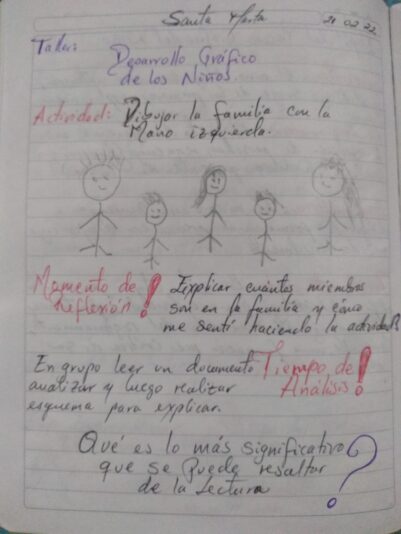 Santa Marta 21 02 22
Taller:
Desarrollo Gráfico
de los Niños.
Actividad: Dibujar la familia con la
Mano izquierda.
Momento de
Reflexión!
Explicar cuántos miembros
son en la familia y cómo
me sentí haciendo la actividad
En grupo leer un documento
analizar y luego realizar
esquema para explicar.
Tiempo de
Análisis!
Qué es lo más significativo
que se puede resaltar
de la lectura?